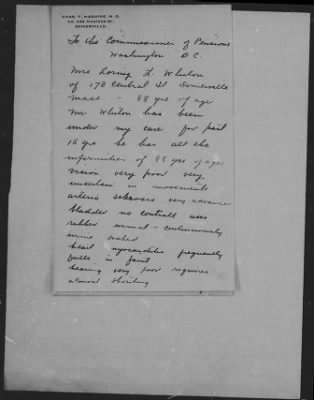 CHAS. F. MAGUIRE, M.D.
SOMERVILLE.
To the Commissioner of Pensions
Washington D.C.
Mrs Loring L. Whiton
of 178 Central St Somerville
Mass - 88 yrs of age
Mr Whiton has been
under my care for past
16 yrs he has all the
infirmities of 88 yrs of age
Vision very poor very
uncertain in movements
arterio scleroses very advance
bladder no controll uses
rubber urinal - continuously
urine soaked
heart myocarditis frequently
falls in faint
hearing very poor requires
almost shouting